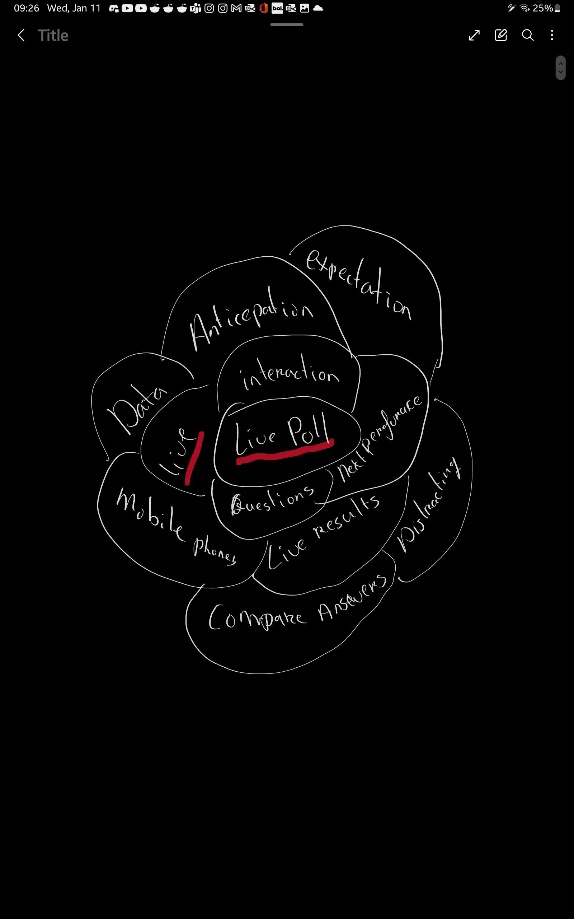 09:26 Wed, Jan 11
25%
Title
expectation
Anticepation
interaction
Data
Live
Live Poll
Questions
Mobile phones
Live results
Distracting
Compare Answers